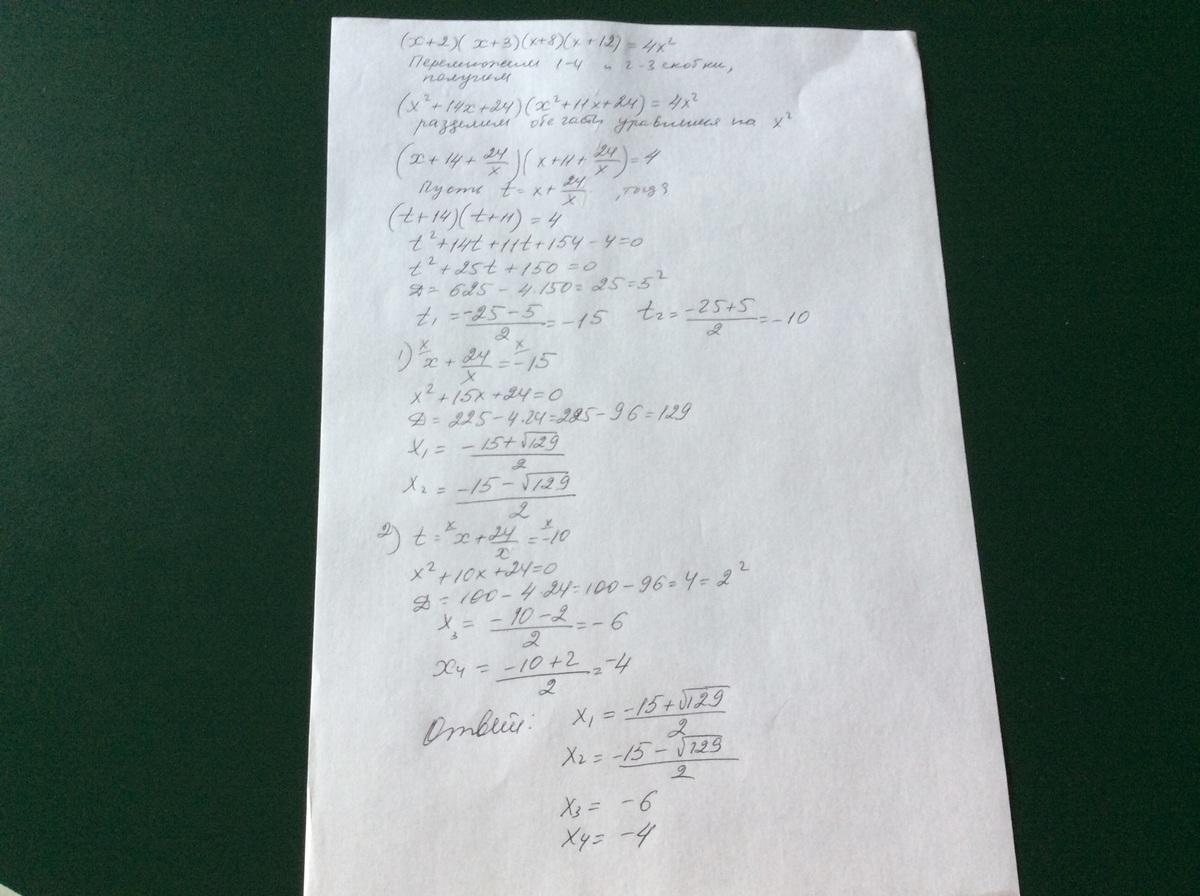 (x+2)(x+3)(x+8)(x+12) = 4x²
Перемножим 1-4 и 2-3 скобки,
получим
(x²+14x+24)(x²+11x+24) = 4x²
разделим обе части уравнения на x²
(x+14+24/x)(x+11+24/x)=4
Пусть t = x + 24/x, тогда
(t+14)(t+11) = 4
t²+14t+11t+154-4=0
t²+25t+150=0
D = 625 - 4·150 = 25 = 5²
t₁ = (-25-5)/2 = -15 t₂ = (-25+5)/2 = -10
1) ˣ/x + 24/x = ˣ/-15
x²+15x+24=0
D = 225-4·24=225-96=129
x₁ = (-15+√129)/2
x₂ = (-15-√129)/2
2) t = ˣx + 24/x = ˣ-10
x²+10x+24=0
D = 100-4·24=100-96=4=2²
x₃ = (-10-2)/2 = -6
x₄ = (-10+2)/2 = -4
Ответ: x₁ = (-15+√129)/2
x₂ = (-15-√129)/2
x₃ = -6
x₄ = -4